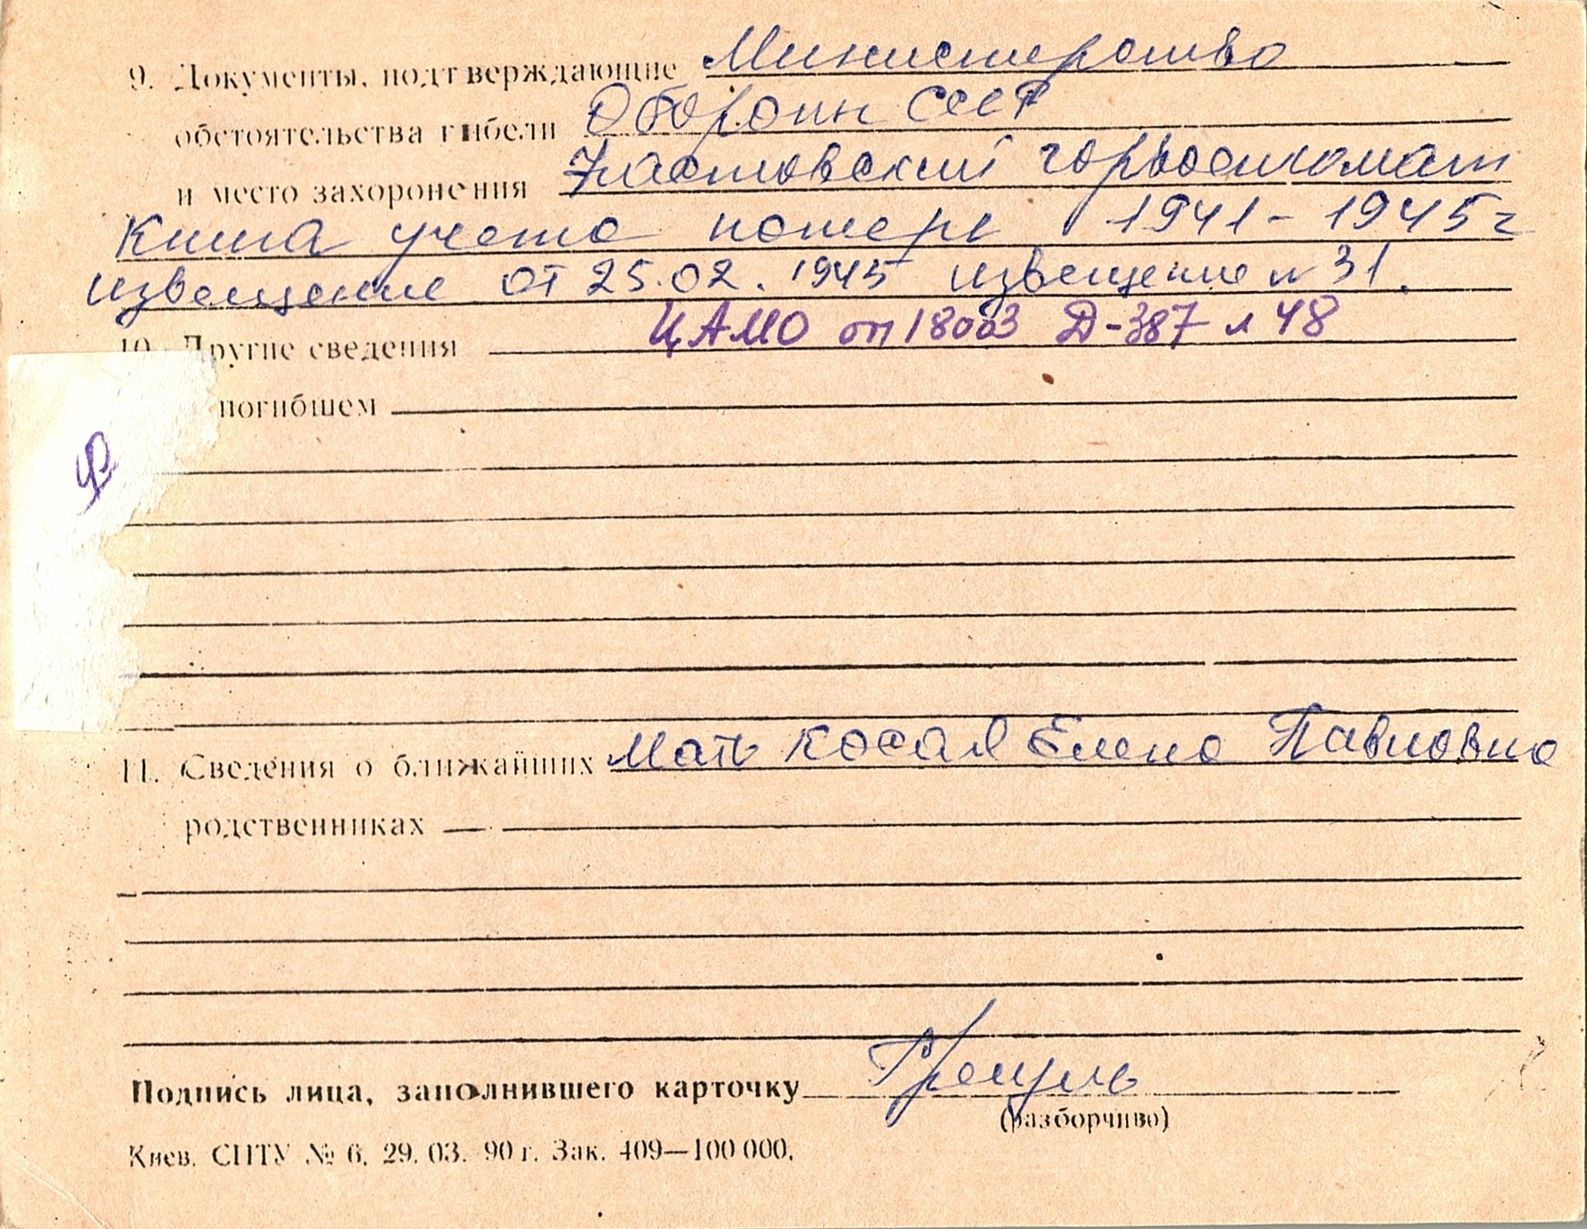 9. Документы, подтверждающие Министерство
обстоятельства гибели Оборони СССР
и место захоронения Фастовский горвоенкомат
Книга учета потерь 1941-1945 г
извещение от 25.02.1945 извещение № 31.
10. Другие сведения ЦАМО оп 18003 Д-387 л 48
погибшем
11. Сведения о ближайших Мать Косая Елена Павловна
родственниках
Подпись лица, заполнившего карточку
(разборчиво)
Киев. СПТУ № 6. 29. 03. 90 г. Зак. 409—100 000.